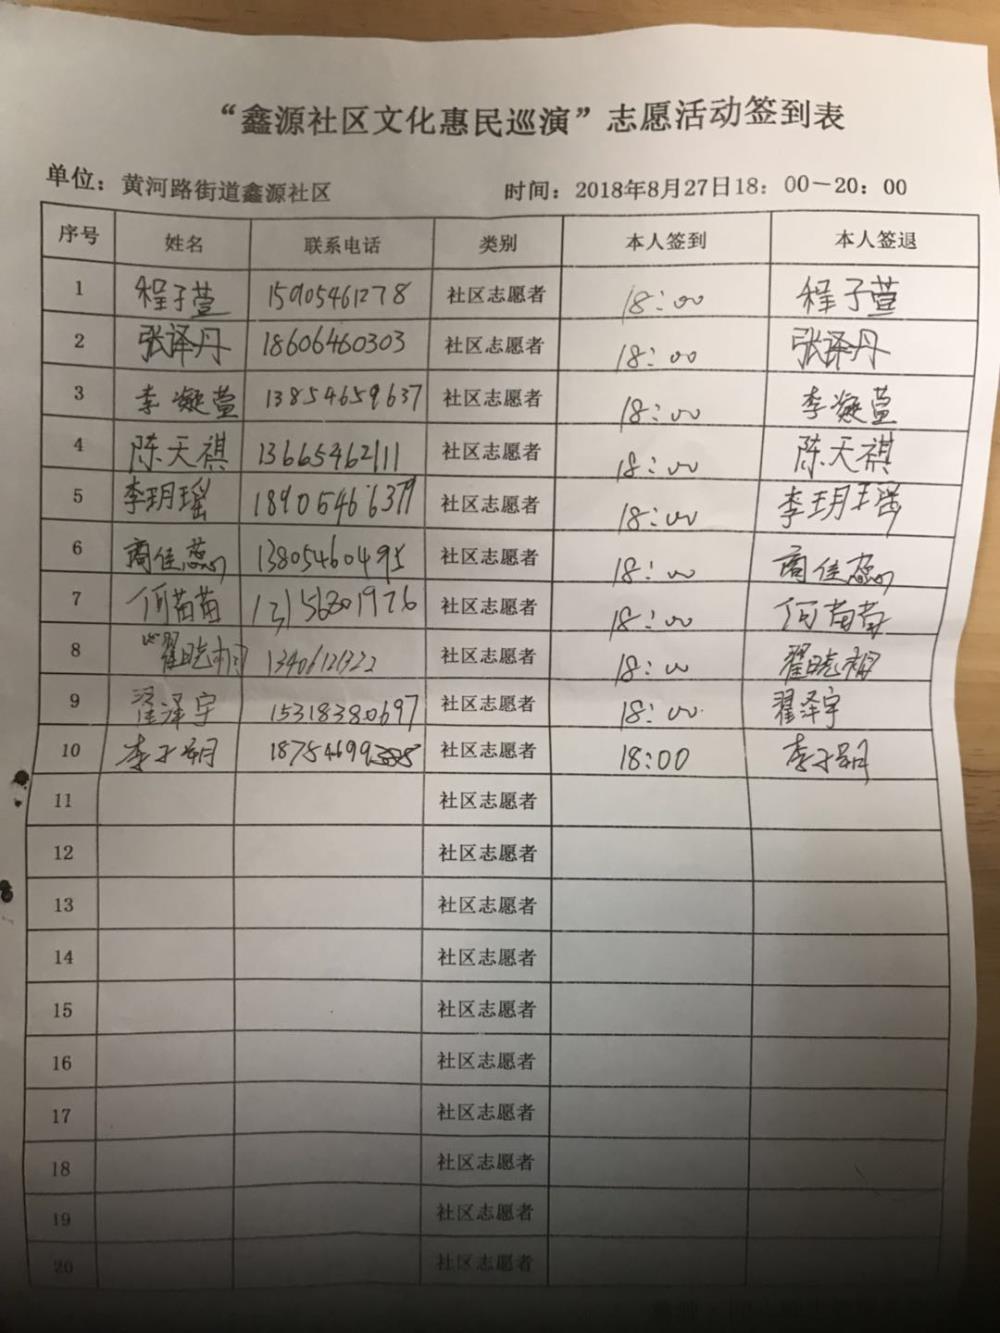 “鑫源社区文化惠民巡演”志愿活动签到表
单位：黄河路街道鑫源社区 时间：2018年8月27日18：00－20：00
序号 姓名 联系电话 类别 本人签到 本人签退
1 程子萱 15905461278 社区志愿者 18:00 程子萱
2 张译丹 18606460303 社区志愿者 18:00 张译丹
3 李凝萱 13854659637 社区志愿者 18:00 李凝萱
4 陈天祺 13665462111 社区志愿者 18:00 陈天祺
5 李玥瑶 18905466377 社区志愿者 18:00 李玥瑶
6 商佳蕊 13805460495 社区志愿者 18:00 商佳蕊
7 何苗苗 社区志愿者 18:00 何苗苗
8 社区志愿者 18:00
9 翟泽宇 15318380697 社区志愿者 18:00 翟泽宇
10 李子玥 社区志愿者 18:00 李子玥
11 社区志愿者
12 社区志愿者
13 社区志愿者
14 社区志愿者
15 社区志愿者
16 社区志愿者
17 社区志愿者
18 社区志愿者
19 社区志愿者
20 社区志愿者